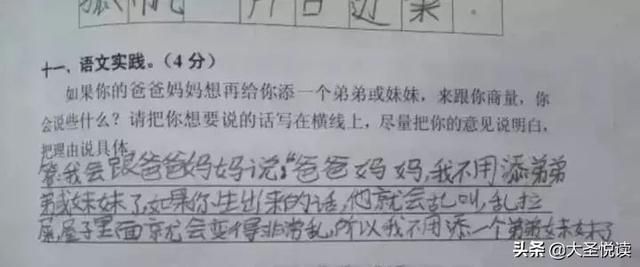 十一、语文实践。(4分)
如果你的爸爸妈妈想再给你添一个弟弟或妹妹，来跟你商量，你
会说些什么？请把你想要说的话写在横线上，尽量把你的意见说明白，
把理由说具体。
答:我会跟爸爸妈妈说:“爸爸妈妈,我不用添弟弟
弟或妹妹了,如果你生出来的话,他就会乱叫,乱拉
屎,屋子里面就会变得非常乱,所以我不用添一个弟弟妹妹了
头条 @大圣悦读